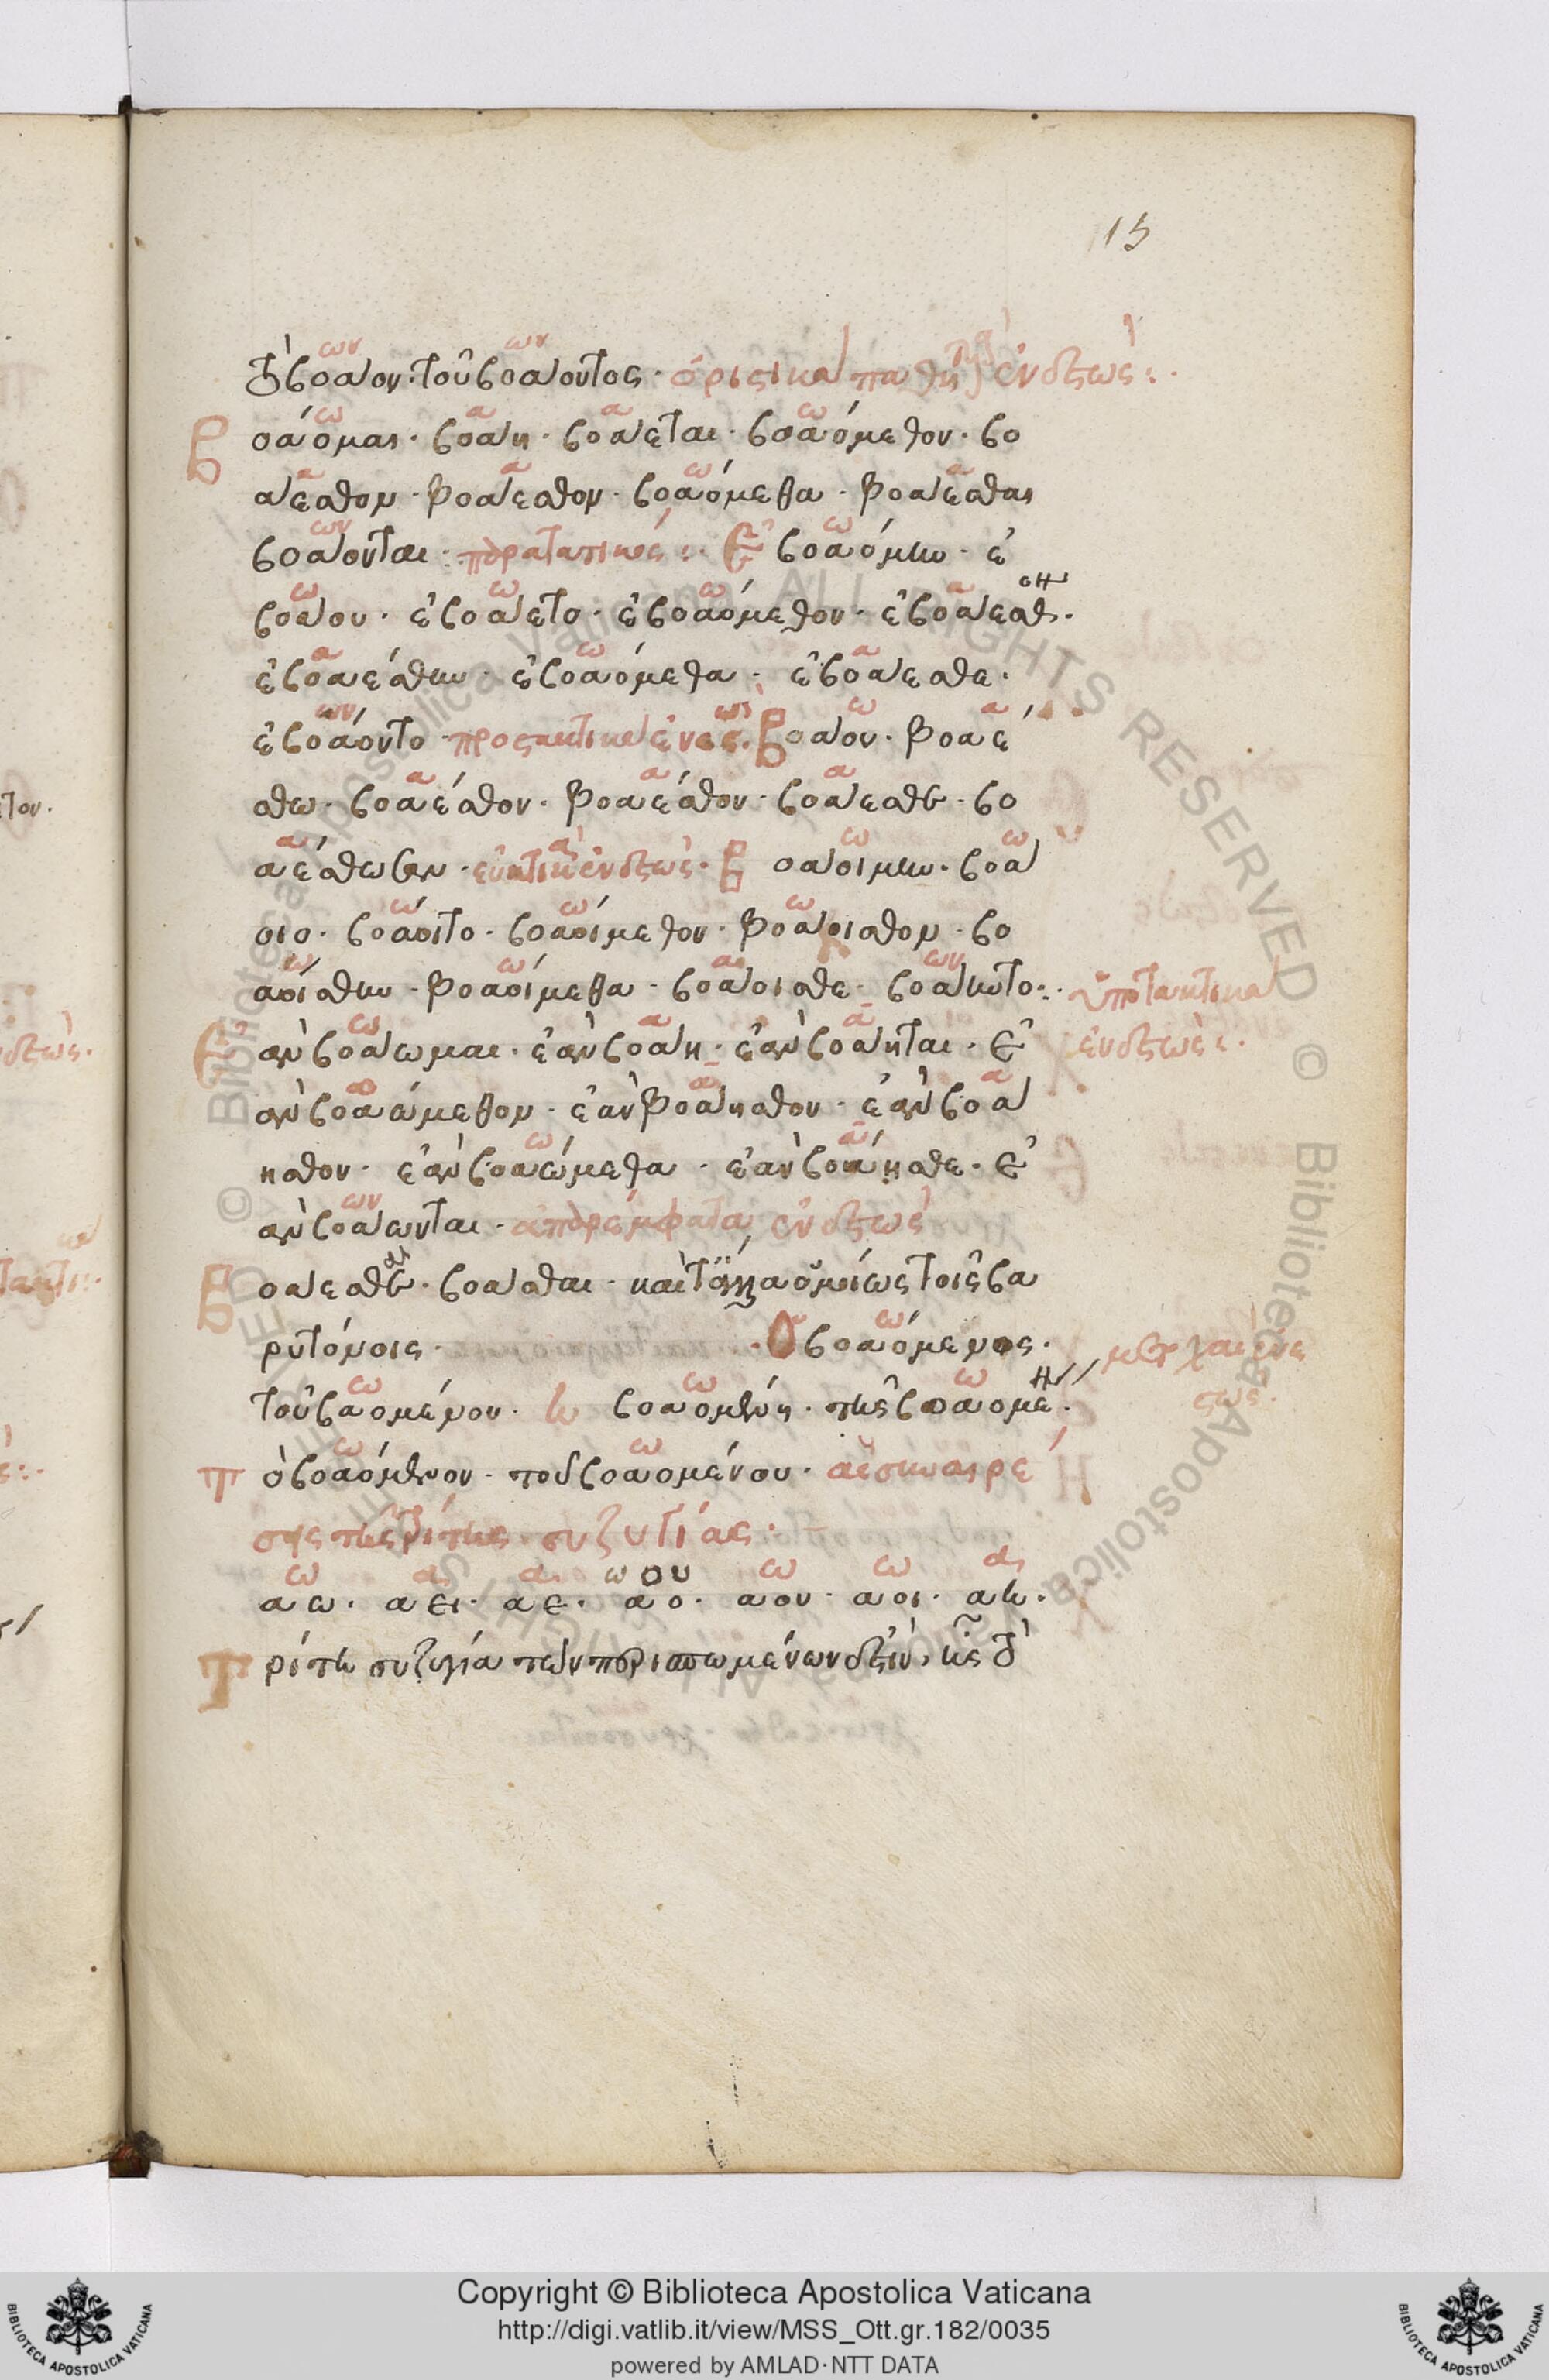 15
τὸ βοάον· τοῦ βοάοντος· ὁριστικὰ παθητικὰ ἐνεστῶτος:·
Βοάομαι· βοάη· βοάεται· βοαόμεθον· βο
άεσθον· βοάεσθον· βοαόμεθα· βοάεσθαι
βοάονται· παρατατικός:· Ἐβοαόμην· ἐ
βοάου· ἐβοάετο· ἐβοαόμεθον· ἐβοάεσθον·
ἐβοαέσθην· ἐβοαόμεθα· ἐβοάεσθε·
ἐβοάοντο· προστακτικὰ Βοάου· βοαέ
σθω· βοαέσθον· βοαέσθον· βοάεσθε· βο
αέσθωσαν· εὐκτικὰ ἐνεστῶτος· Βοαοίμην· βοά
οιο· βοάοιτο· βοαοίμεθον· βοάοισθον· βο
αοίσθην· βοαοίμεθα· βοάοισθε· βοάοιντο:· ὑποτακτικὰ
Ἐὰν βοάωμαι· ἐὰν βοάη· ἐὰν βοάηται· ἐ ἐνεστῶτος:·
ὰν βοαώμεθον· ἐὰν βοάησθον· ἐὰν βοά
ησθον· ἐὰν βοαώμεθα· ἐὰν βοάησθε· ἐ
ὰν βοάωνται· ἀπαρέμφατα ἐνεστῶτος
Βοάεσθαι· βοᾶσθαι· καὶ τἄλλα ὁμοίως τοῖς βα
ρυτόνοις· Ὁ βοαόμενος· μετοχαὶ ἐνε
τοῦ βοαομένου· ἡ βοαομένη· τῆς βοαομένης· στῶτος·
Τὸ βοαόμενον· τοῦ βοαομένου· αἱ συναιρέ
σεις τῆς τρίτης συζυγίας·
αω· αει· αε· αο· αου· αοι· αη·
Τρίτη συζυγία τῶν περισπωμένων ἐστὶν, ἧς τὸ
Copyright © Biblioteca Apostolica Vaticana
http://digi.vatlib.it/view/MSS_Ott.gr.182/0035
powered by AMLAD·NTT DATA